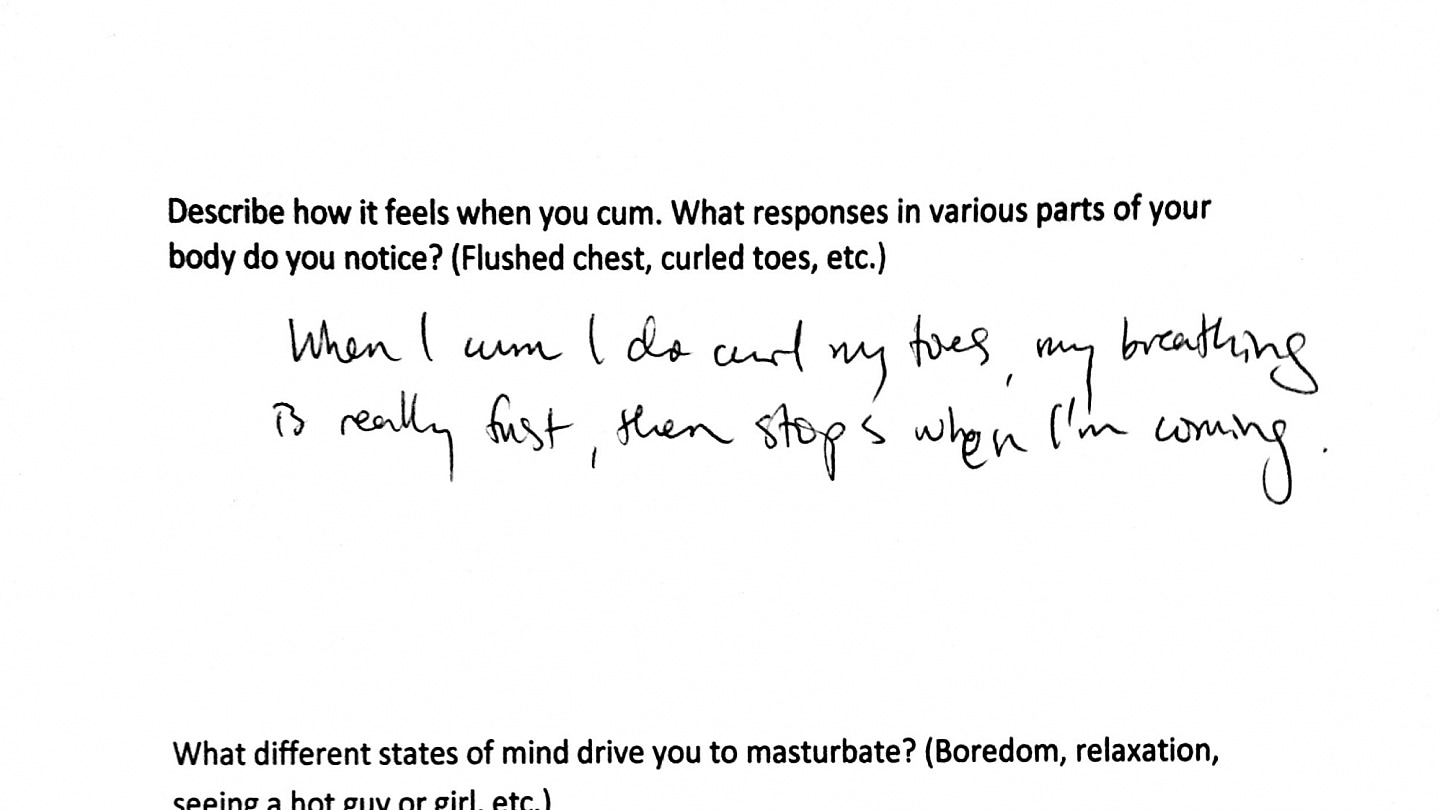 Describe how it feels when you cum. What responses in various parts of your
body do you notice? (Flushed chest, curled toes, etc.)
When I cum I do curl my toes, my breathing
is really fast, then stops when I'm coming.
What different states of mind drive you to masturbate? (Boredom, relaxation,
seeing a hot guy or girl, etc.)